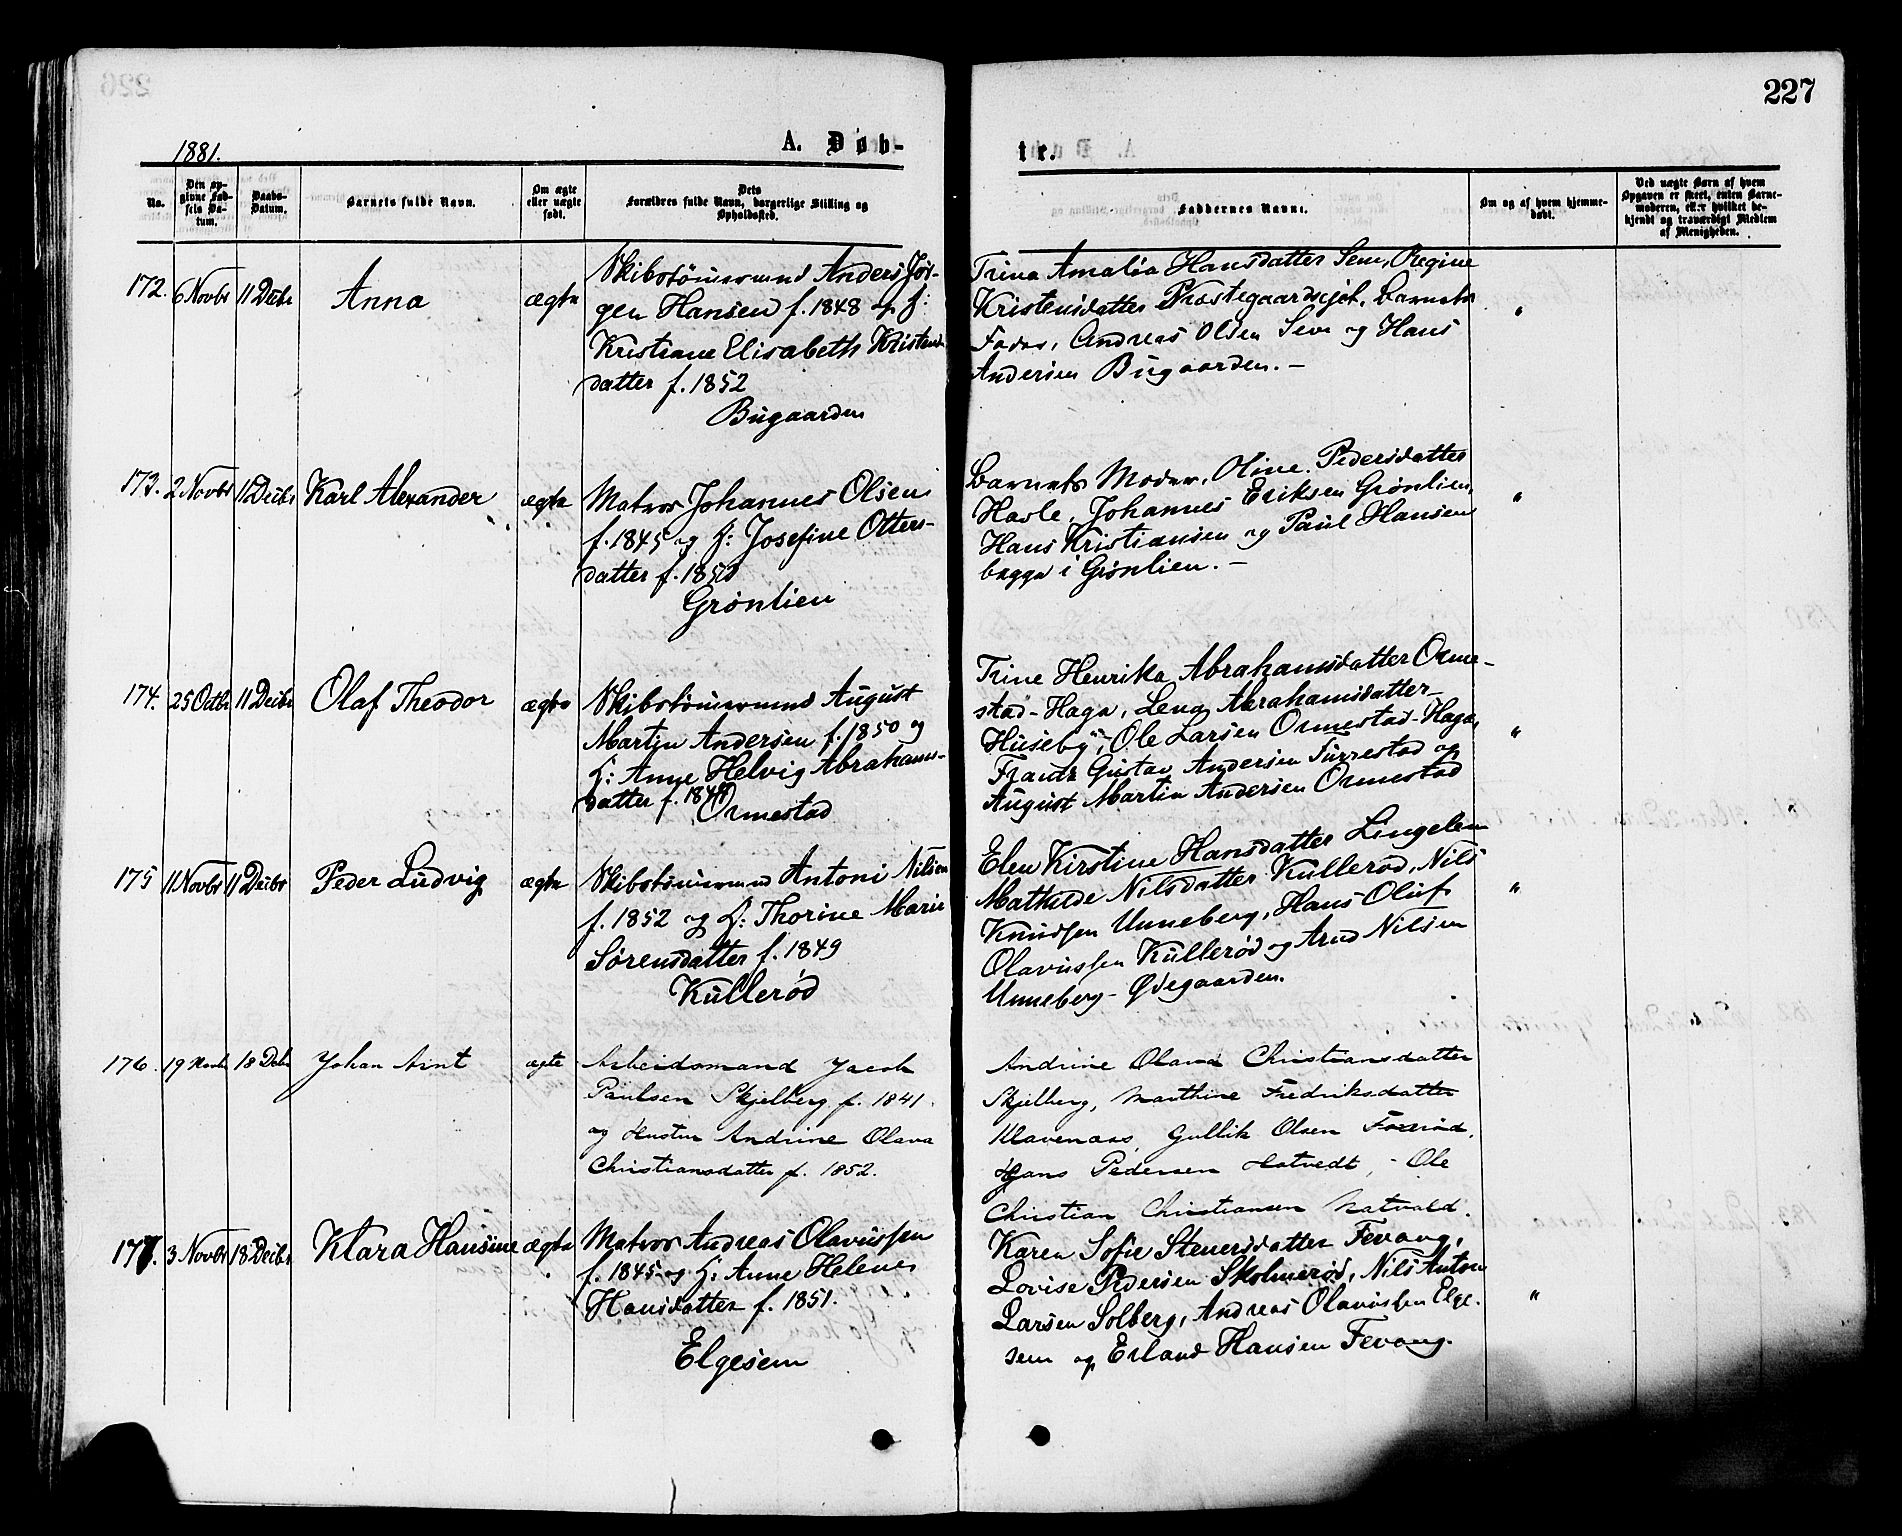 227
1881.
A. Døb-
te.
No.
Den op-
givne Fød-
sels Da-
tum.
Daabs-
Datum.
Barnets fulde Navn.
Om ægte
eller uægte
født.
Dets
Forældres fulde Navn, borgerlige Stilling og
Opholdssted.
Faddernes Navne.
Om og af hvem hjemme-
døbt.
Ved uægte Børn af hvem
Opgaven er skeet, enten Barne-
moderen, eller hvilket be-
kjendt og troværdigt Medlem
af Menigheden.
172. 6 Novbr 11 Decbr Anna ægte
Skibstømmermand Anders Jør-
gen Hansen f. 1848 og H:
Kristiane Elisabeth Kristens
datter f. 1852
Bugaarden
Trina Amalia Hansdatter Sem, Regine
Kristensdatter Præstegaardsejet, Barnets
Fader, Andreas Olsen Sem og Hans
Andersen Bugaarden. –
"
173. 2 Novbr 11 Decbr Karl Alexander ægte
Matros Johannes Olsen
f. 1845 og H: Josefine Otters-
datter f. 1853
Grønlien
Barnets Moder, Oline Pedersdatter
Hasle, Johannes Eriksen Grønlien,
Hans Kristiansen og Paul Hansen
begge i Grønlien. –
"
174. 25 Octbr 11 Decbr Olaf Theodor ægte
Skibstømmermand August
Martin Andersen f. 1850 og
H: Anne Helvig Abrahams-
datter f. 1848
Ormestad
Trine Henrika Abrahamsdatter Orme-
stad-Haga, Lena Abrahamsdatter
Huseby, Ole Larsen Ormestad-Haga,
Frantz Gustav Andersen Furrestad og
August Martin Andersen Ormestad
"
175 11 Novbr 11 Decbr Peder Ludvig ægte
Skibstømmermand Antoni Nilsen
f. 1852 og H: Thorine Marie
Sørensdatter f. 1849
Kullerød
Elen Kirstine Hansdatter Lingelem
Mathilde Nilsdatter Kullerød, Nils
Knudsen Unneberg, Hans Oluf
Olavussen Kullerød og Arnd Nilsen
Unneberg-Ødegaarden.
"
176. 19 Novbr 18 Decbr Johan Arnt ægte
Arbeidsmand Jacob
Paulsen Skjelberg f. 1841.
og Hustru Andrine Olava
Christiansdatter f. 1852.
Andrine Olava Christiansdatter
Skjelberg, Marthine Fredriksdatter
Klavenæs, Gullik Olsen
Hans Pedersen Hotvedt, – Ole
Christian Christiansen Natvald.
177. 3 Novbr 18 Decbr Klara Hansine ægte
Matros Andreas Olavussen
f. 1845 og H: Anne Helene
Hansdatter f. 1851.
Elgesem
Karen Sofie Stenersdatter Fevang,
Lovise Pedersen Skolmerød, Nils Anton
Larsen Solberg, Andreas Olavussen Elge-
sem og Erland Hansen Fevang.
"